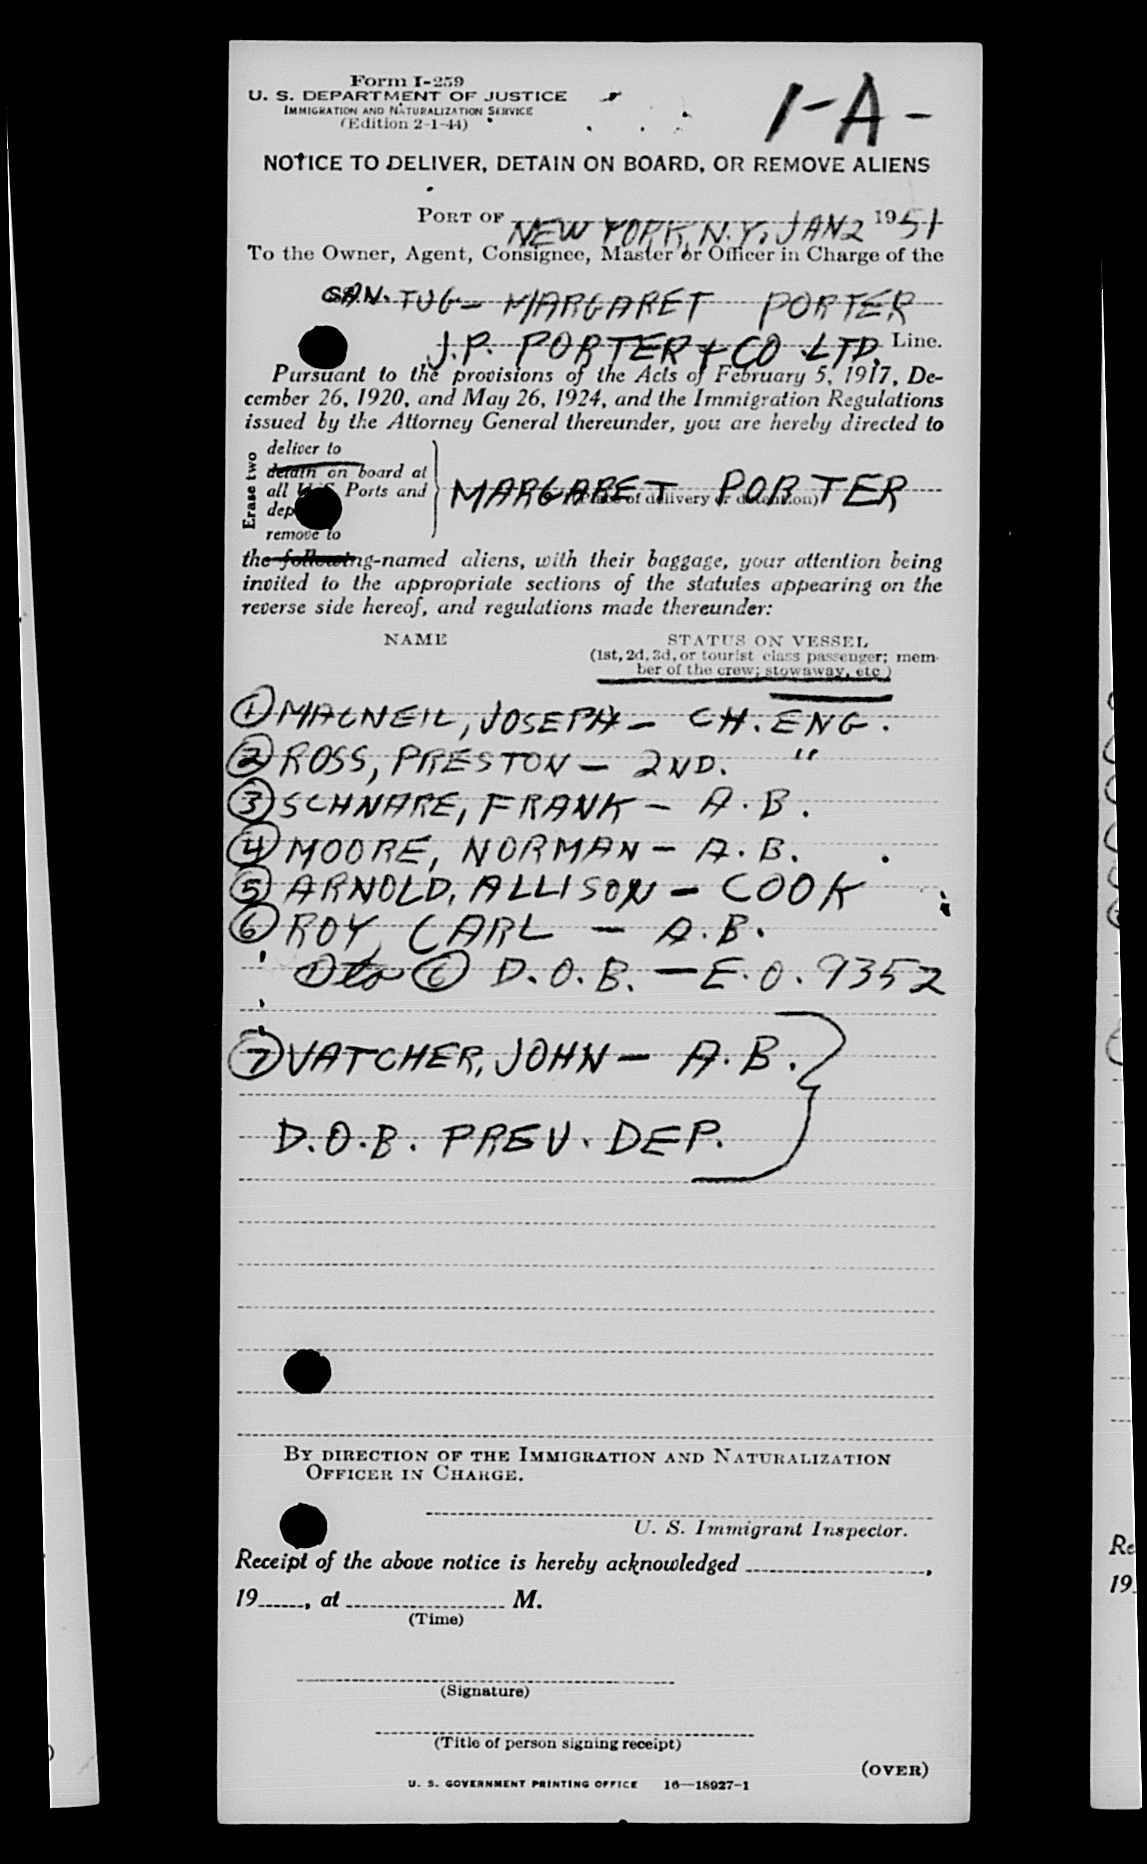 Form I-259
U. S. DEPARTMENT OF JUSTICE
IMMIGRATION AND NATURALIZATION SERVICE
(Edition 2-1-44)
1-A-
NOTICE TO DELIVER, DETAIN ON BOARD, OR REMOVE ALIENS
PORT OF NEW YORK, N.Y. JAN 2 1951
To the Owner, Agent, Consignee, Master or Officer in Charge of the
CAN. TUG - MARGARET PORTER
J.P. PORTER & CO. LTD. Line.
Pursuant to the provisions of the Acts of February 5, 1917, De-
cember 26, 1920, and May 26, 1924, and the Immigration Regulations
issued by the Attorney General thereunder, you are hereby directed to
Erase two
deliver to
detain on board at
all U.S. Ports and
dep
remove to
MARGARET PORTER
(Place of delivery or detention)
the following-named aliens, with their baggage, your attention being
invited to the appropriate sections of the statutes appearing on the
reverse side hereof, and regulations made thereunder:
NAME STATUS ON VESSEL
(1st, 2d, 3d, or tourist class passenger; mem-
ber of the crew; stowaway, etc.)
1 MACNEIL, JOSEPH - CH. ENG.
2 ROSS, PRESTON - 2ND. "
3 SCHNARE, FRANK - A.B.
4 MOORE, NORMAN - A.B.
5 ARNOLD, ALLISON - COOK
6 ROY, CARL - A.B.
1 to 6 D.O.B. - E.O. 9352
7 VATCHER, JOHN - A.B.
D.O.B. PREV. DEP.
BY DIRECTION OF THE IMMIGRATION AND NATURALIZATION
OFFICER IN CHARGE.
U. S. Immigrant Inspector.
Receipt of the above notice is hereby acknowledged ,
19 , at M.
(Time)
(Signature)
(Title of person signing receipt)
(OVER)
U. S. GOVERNMENT PRINTING OFFICE 16—18927-1
Re
19